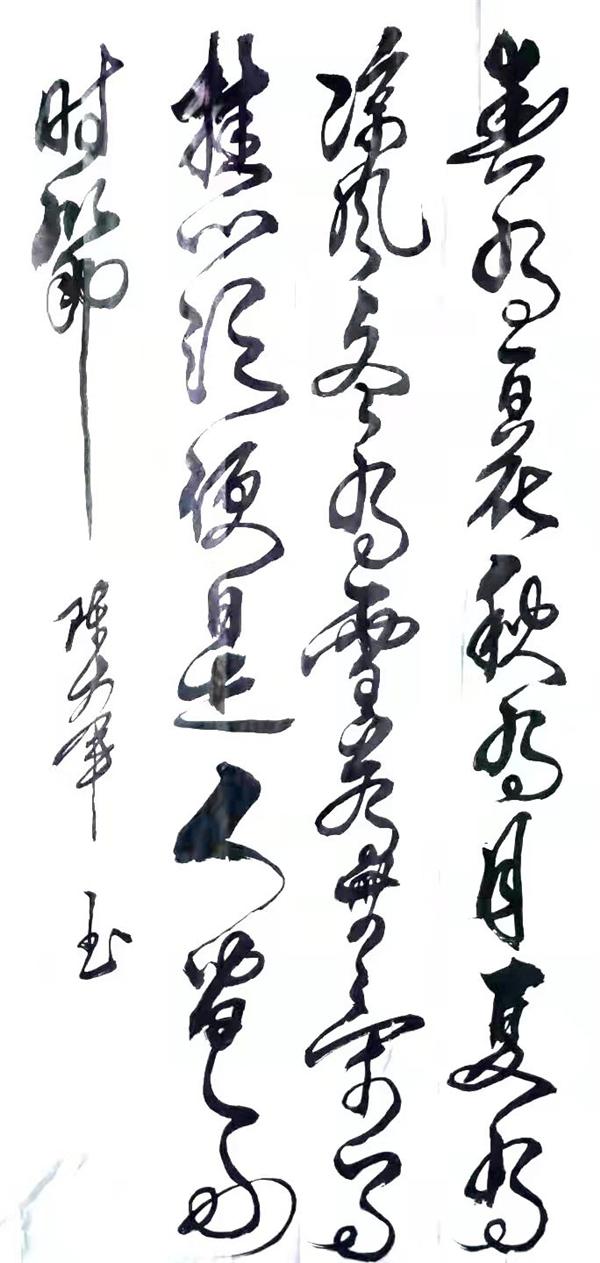 春有百花秋有月夏有
凉风冬有雪若無闲事
挂心头便是人间好
时节
陈大军